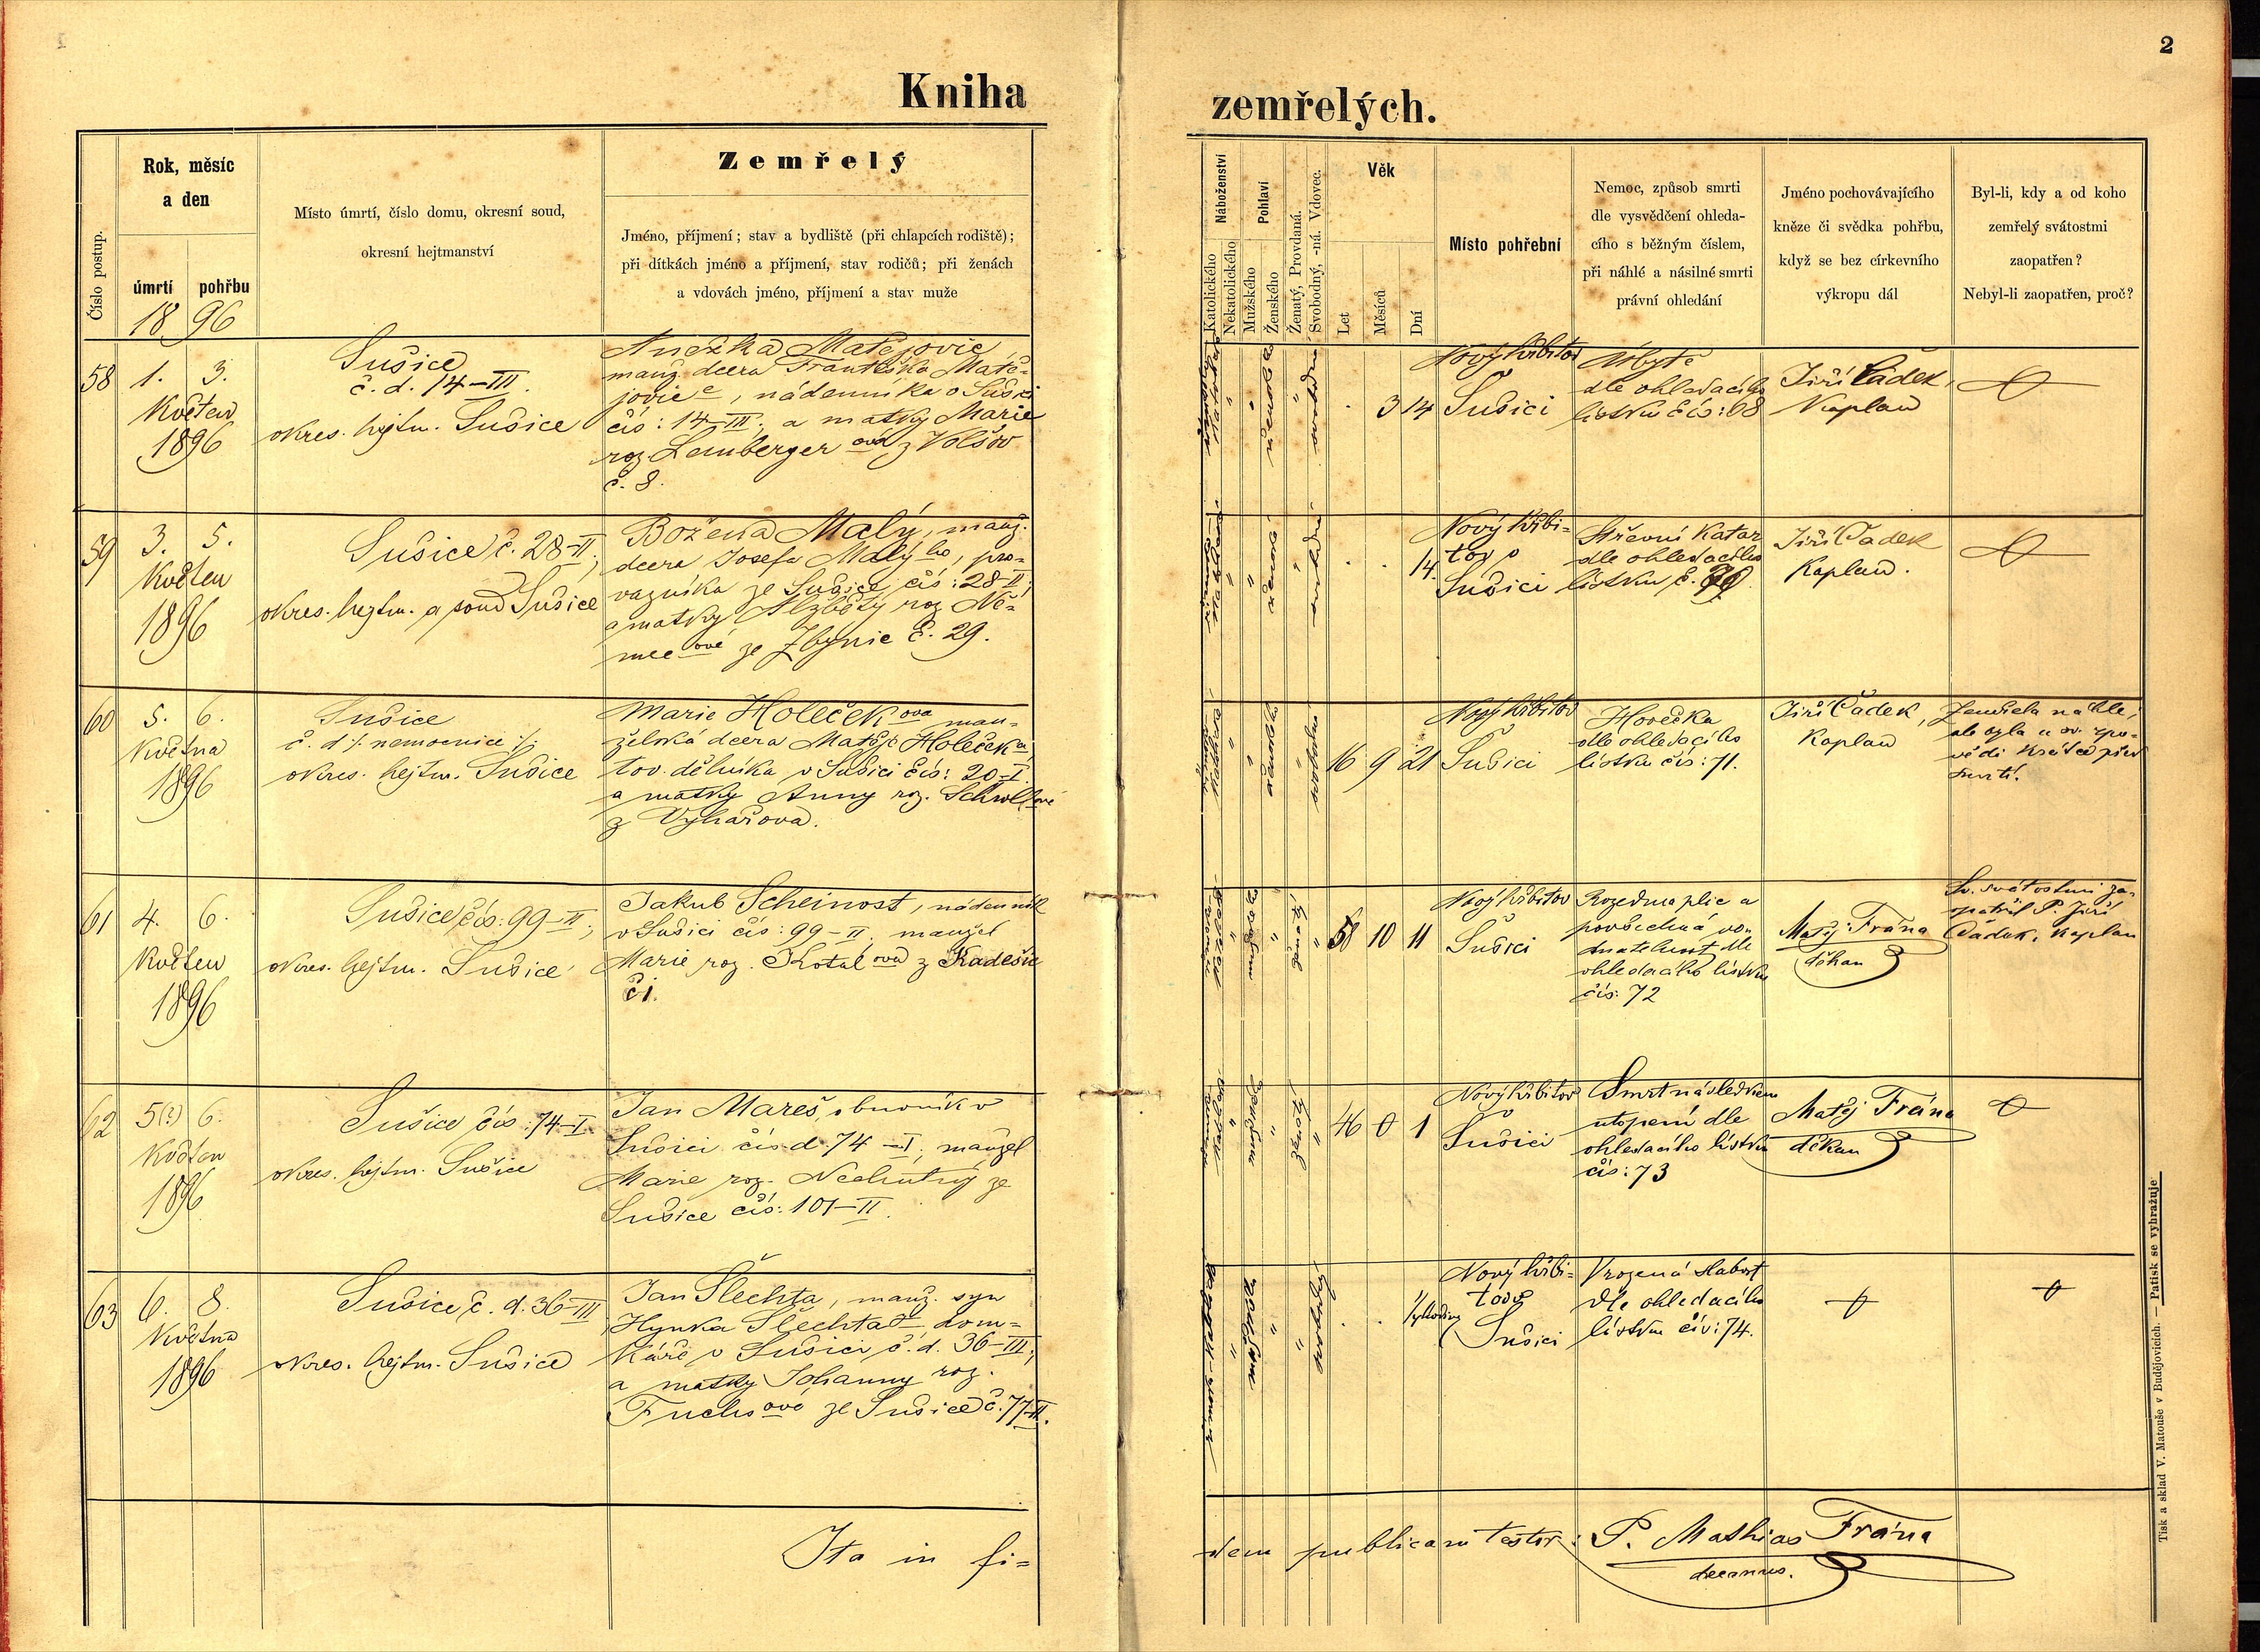 2
Kniha zemřelých.
Číslo postup.
Rok, měsíc
a den
úmrtí pohřbu
18 96
Místo úmrtí, číslo domu, okresní soud,
okresní hejtmanství
Zemřelý
Jméno, příjmení; stav a bydliště (při chlapcích rodiště);
při dítkách jméno a příjmení, stav rodičů; při ženách
a vdovách jméno, příjmení a stav muže
Náboženství
Katolického
Nekatolického
Pohlaví
Mužského
Ženského
Ženatý, Provdaná.
Svobodný, -ná. Vdovec.
Věk
Let
Měsíců
Dní
Místo pohřební
Nemoc, způsob smrti
dle vysvědčení ohleda-
cího s běžným číslem,
při náhlé a násilné smrti
právní ohledání
Jméno pochovávajícího
kněze či svědka pohřbu,
když se bez církevního
výkropu dál
Byl-li, kdy a od koho
zemřelý svátostmi
zaopatřen?
Nebyl-li zaopatřen, proč?
58
1. 3.
Květen
1896
Sušice
č. d. 14-III.
okres. hejtm. Sušice
Anežka Matějovic
manž. dcera Františka Matě-
jovice, nádenníka v Sušici
čís: 14-III; a matky Marie
roz. Lemberger ová z Volšov
č. 8.
ženského
svobodná
3 14
Nový hřbitov
Sušici
Úbytě
dle ohledacího
lístku čís: 68
Jiří Čádek,
Kaplan
59
3. 5.
Květen
1896
Sušice č. 28-II;
okres. hejtm. a soud Sušice
Božena Malý, manž.
dcera Josefa Malýho, pro-
vazníka ze Sušice čís: 28-II;
a matky Alžběty roz. Ně-
mec ové ze Zbynic č. 29.
14.
Nový hřbi-
tov v
Sušici
Střevní Katar
dle ohledacího
lístku č.
Jiří Čádek
Kaplan.
60
5. 6.
Května
1896
Sušice
č. d. /: nemocnice :/;
okres. hejtm. Sušice
Marie Holeček ova man-
želská dcera Matěje Holečka
tov. dělníka v Sušici čís: 20-I.
a matky Anny roz.
z
ženského
svobodna
16 9 21
Nový hřbitov
Sušici
dle ohledacího
lístku čís: 71.
Jiří Čádek,
Kaplan
Zemřela náhle,
ale byla u sv. zpo-
vědi krátce před
smrtí.
61
4. 6.
Květen
1896
Sušice čís: 99-II;
okres. hejtm. Sušice
Jakub Scheinost, nádenník
v Sušici čís: 99-II; manžel
Marie roz. Kotal ova z Kadešic
č 1.
ženatý
58 10 11
Nový hřbitov
Sušici
Rozedma plic a
povšechná vo-
dnatelnost dle
ohledacího lístku
čís: 72
Matěj Frána
děkan
Sv. svátostmi za-
opatřil P. Jiří
Čádek, Kaplan
62
5(?) 6.
Květen
1896
Sušice čís: 74-I.
okres. hejtm. Sušice
Jan Mareš, obuvník v
Sušici čís d 74-I; manžel
Marie roz. Nechutný ze
Sušice čís: 101-II.
46 0 1
Nový hřbitov
Sušici
Smrt následkem
utopení dle
ohledacího lístku
čís: 73
Matěj Frána
děkan
63
6. 8.
Května
1896
Sušice č. d. 36-III
okres. hejtm. Sušice
Jan Šlechta, manž. syn
Hynka Šlechta dom-
káře v Sušici č. d. 36-III;
a matky Johanny roz.
Fuchs ové ze Sušice č. 77-II.
Nový hřbi-
tov v
Sušici
Vrozená slabost
dle ohledacího
lístku čís: 74.
Ita in fi=
dem publicam testor: P. Mathias Frána
decanus.
Tisk a sklad V. Matouše v Budějovicích. — Patisk se vyhražuje